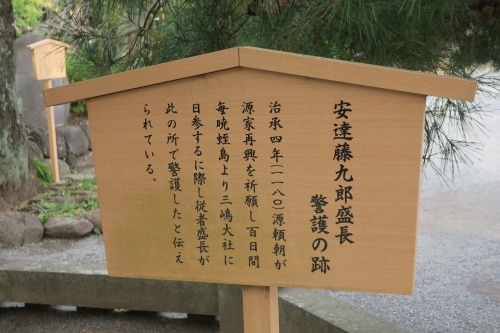 安達藤九郎盛長
警護の跡
治承四年(一一八〇)源頼朝が
源家再興を祈願し百日間
毎暁蛭島より三嶋大社に
日参するに際し従者盛長が
此の所で警護したと伝え
られている。